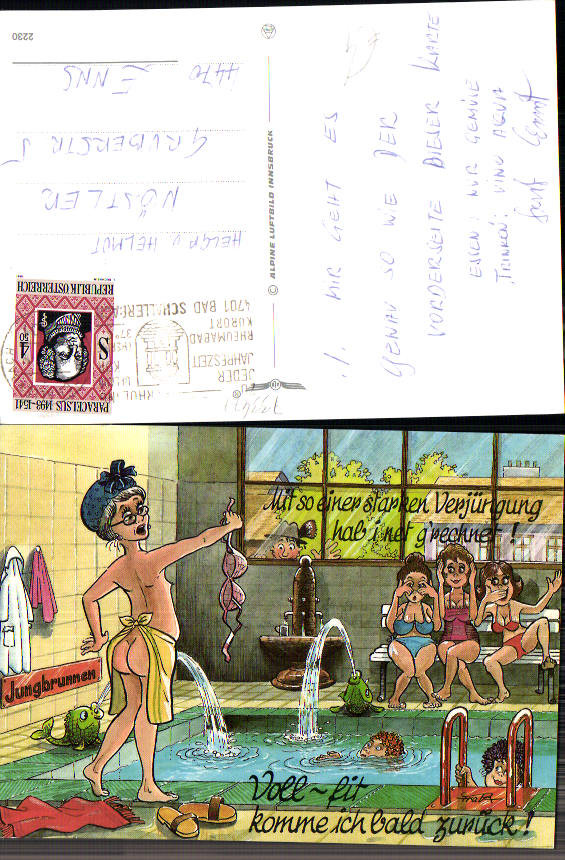 MIR GEHT ES
GENAU SO WIE DER
VORDERSEITE DIESER KARTE
ESSEN: NUR GEMÜSE
TRINKEN: VINO AQUA
HELGA U. HELMUT
NÖSTLER
GRUBERSTR 5
4470 ENNS
2230
ALPINE LUFTBILD INNSBRUCK
PARACELSUS 1493-1541
S 4 50
REPUBLIK ÖSTERREICH
JEDER
JAHRESZEIT
RHEUMABAD
KURORT
4701 BAD SCHALLERBACH
Mit so einer starken Verjüngung
hab i net g'rechnet!
Jungbrunnen
Voll~fit
komme ich bald zurück!